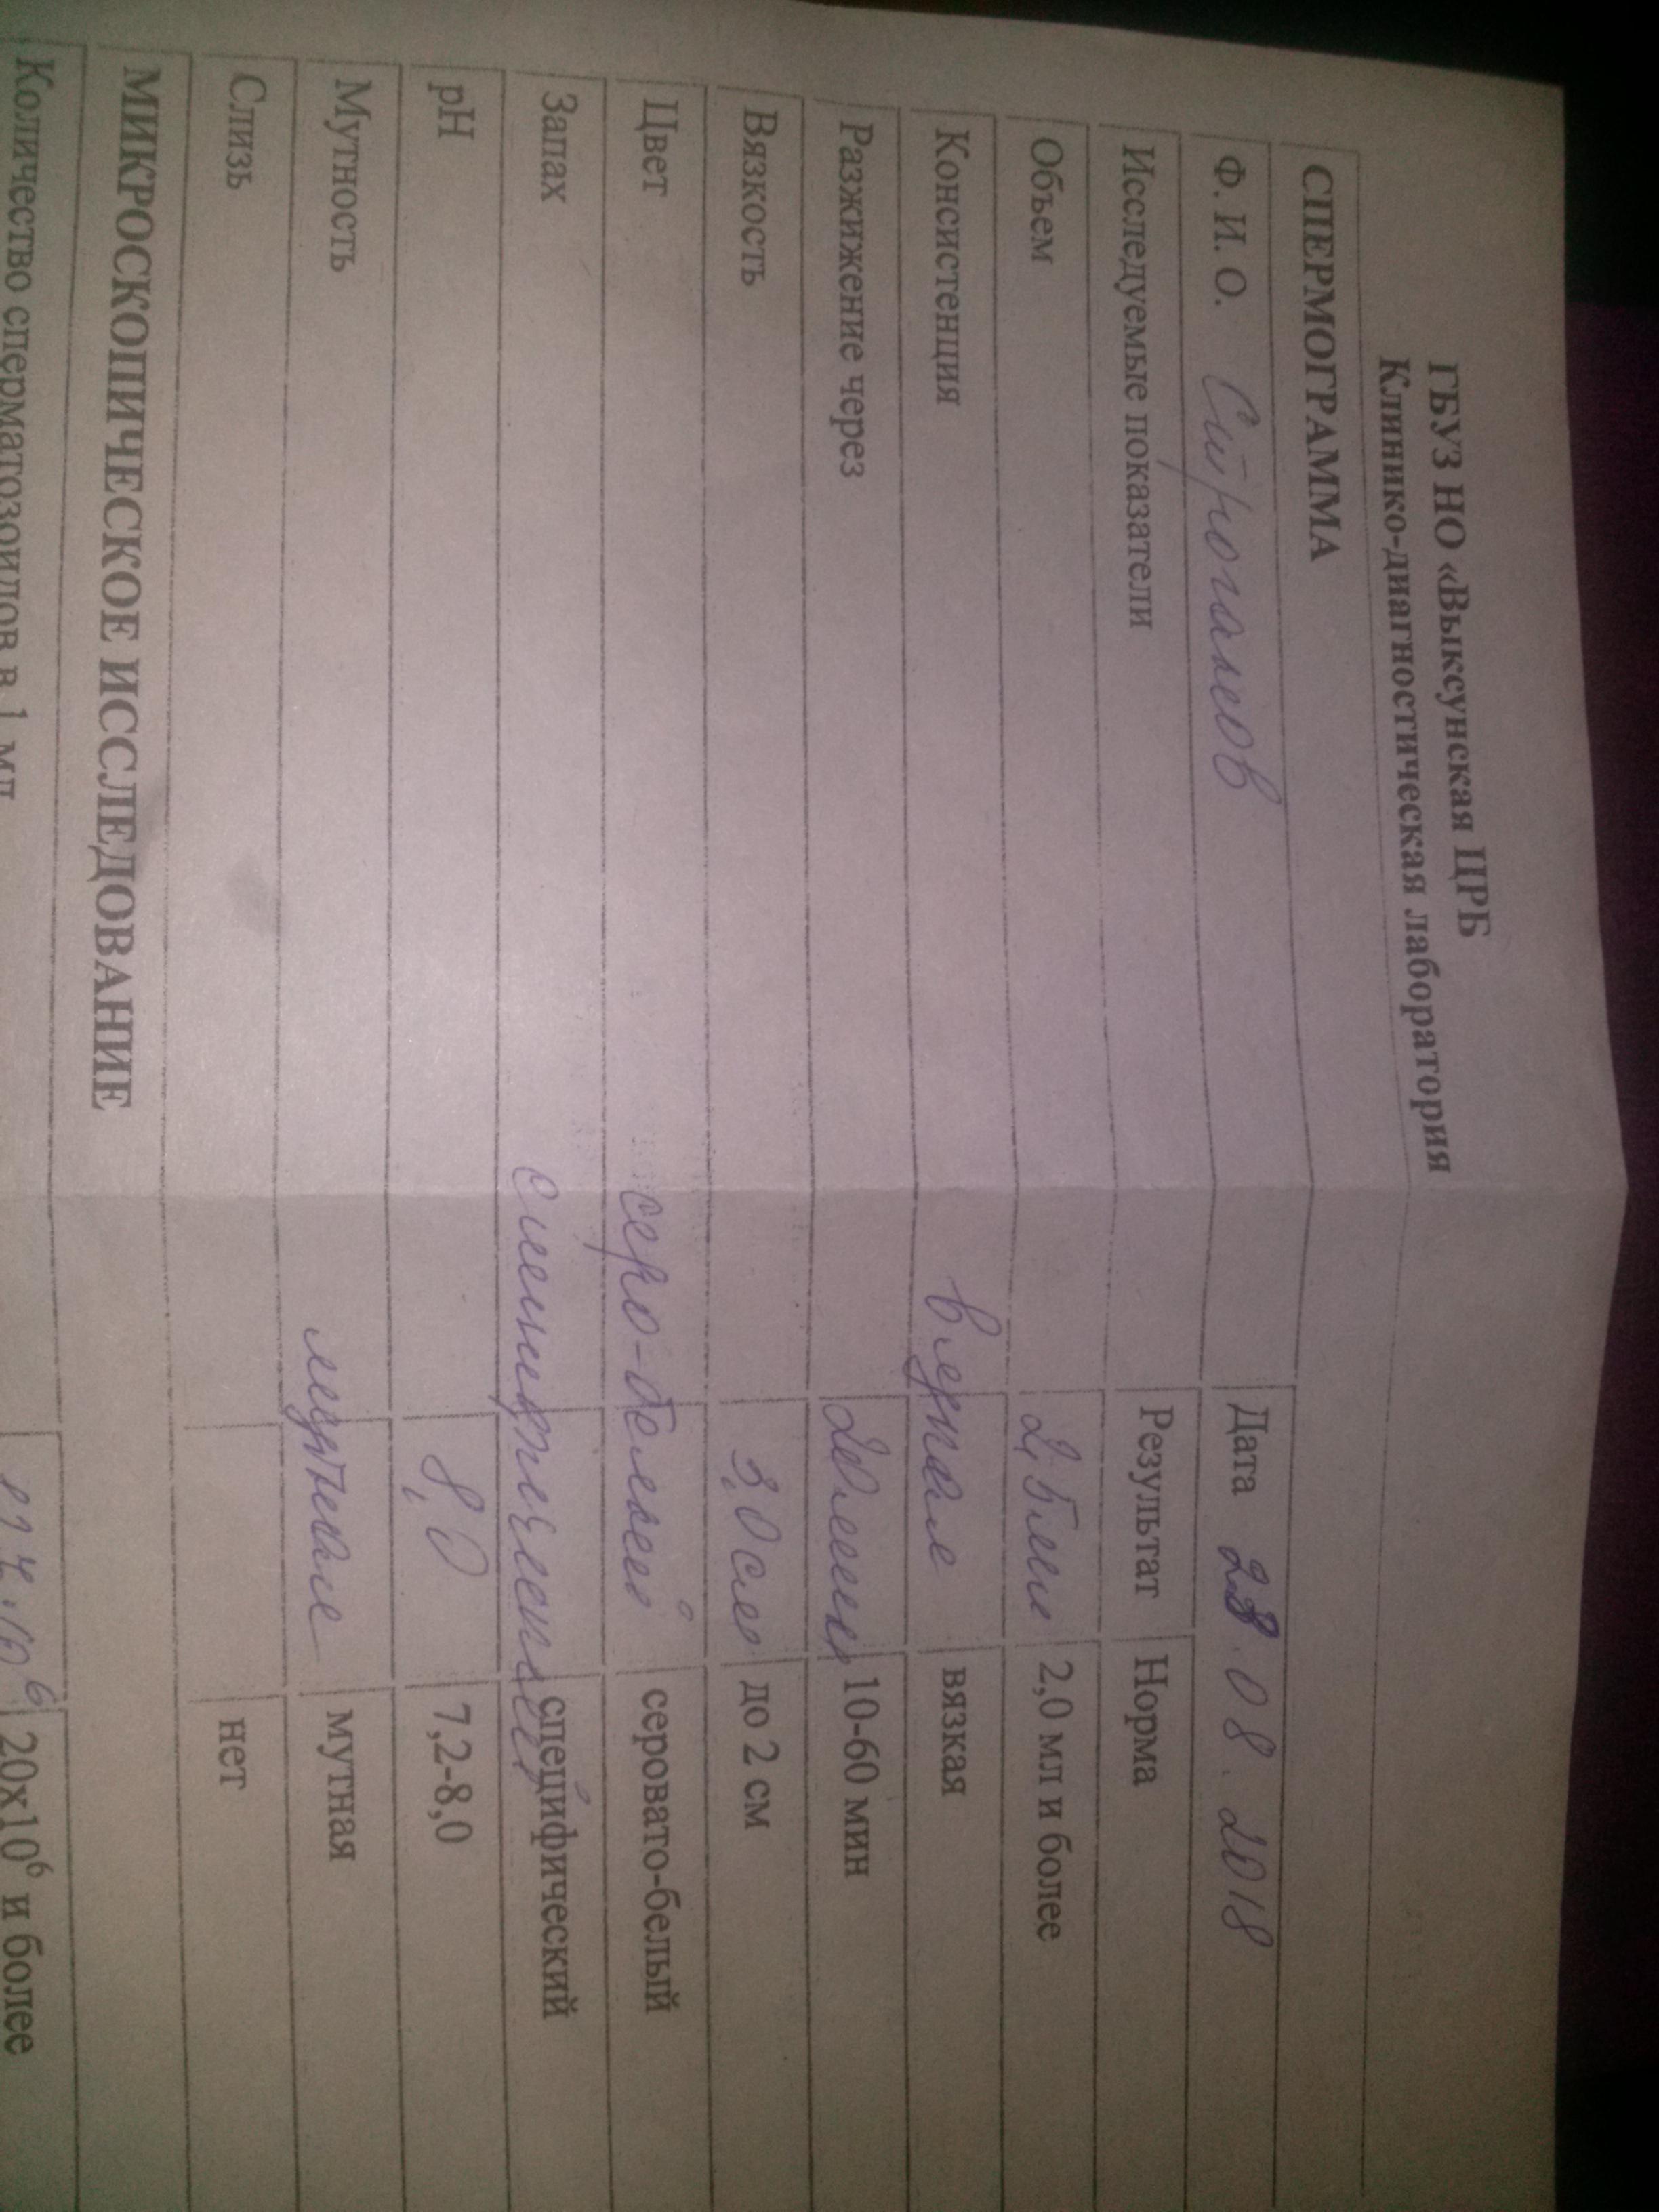 ГБУЗ НО «Выксунская ЦРБ
Клинико-диагностическая лаборатория
СПЕРМОГРАММА
Ф. И. О. Строгалев Дата 28.08.2018
Исследуемые показатели Результат Норма
Объем 2,5мл 2,0 мл и более
Консистенция вязкая вязкая
Разжижение через 20мин 10-60 мин
Вязкость 3,0см до 2 см
Цвет серо-белый серовато-белый
Запах специфический специфический
pH 8,0 7,2-8,0
Мутность мутная мутная
Слизь нет
МИКРОСКОПИЧЕСКОЕ ИССЛЕДОВАНИЕ
Количество сперматозоидов в 1 мл 20x10⁶ и более